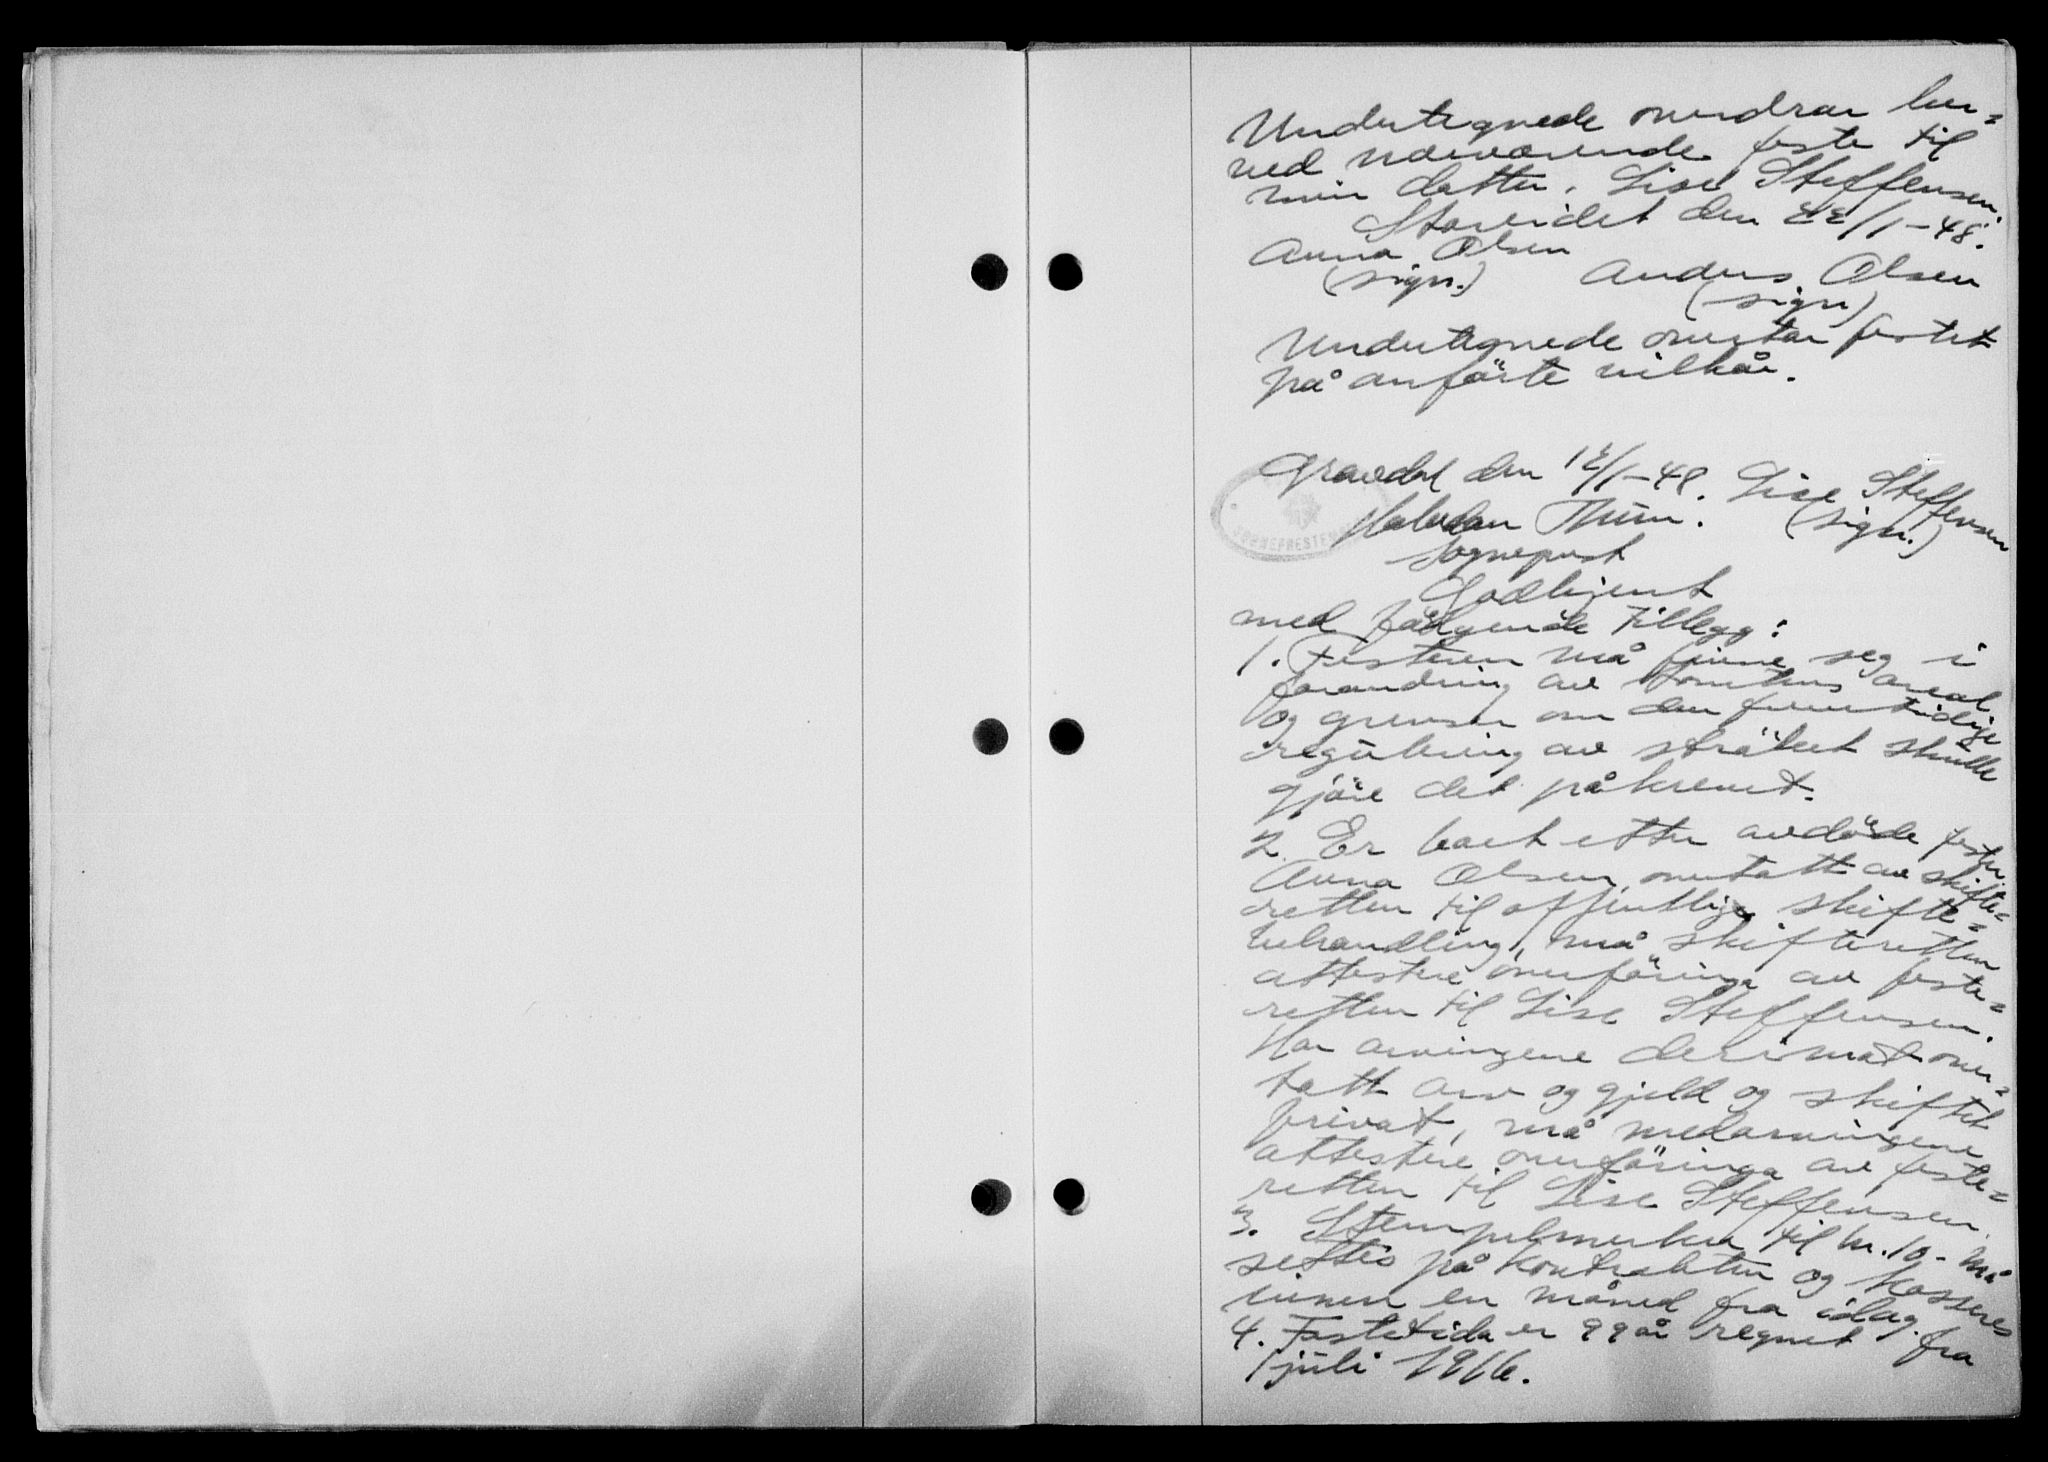 Undertegnede overdrar her=
ved nærværende feste til
min datter, Lise Steffensen.
Storeidet den 22/1-48.
Anna Olsen
(sign.) Anders Olsen
(sign)
Undertegnede overtar festet
på anførte vilkår.
Gravdal den 12/1-48. Lise Steffensen
Halvdan Thün. (sign.)
SOGNEPRESTEN
Sogneprest
Godkjent
med følgende tillegg:
1. Festeren må finne seg i
forandring av tomtens areal
og grenser om den fremtidige
regulering av strøket skulle
gjøre det påkrevet.
2. Er boet etter avdøde fester
Anna Olsen, overtatt av skifte=
retten til offentlige skifte=
behandling, må skifteretten
attestere overføringa av feste=
retten til Lise Steffensen.
Har arvingene derimot over=
tatt arv og gjeld og skiftet
privat, må medarvingene
attestere overføringa av feste=
retten til Lise Steffensen.
3. Stempelmerker til kr. 10- må
settes på kontrakten og kasseres
innen en måned fra idag.
4. Festetida er 99 år regnet fra
1 juli 1916.